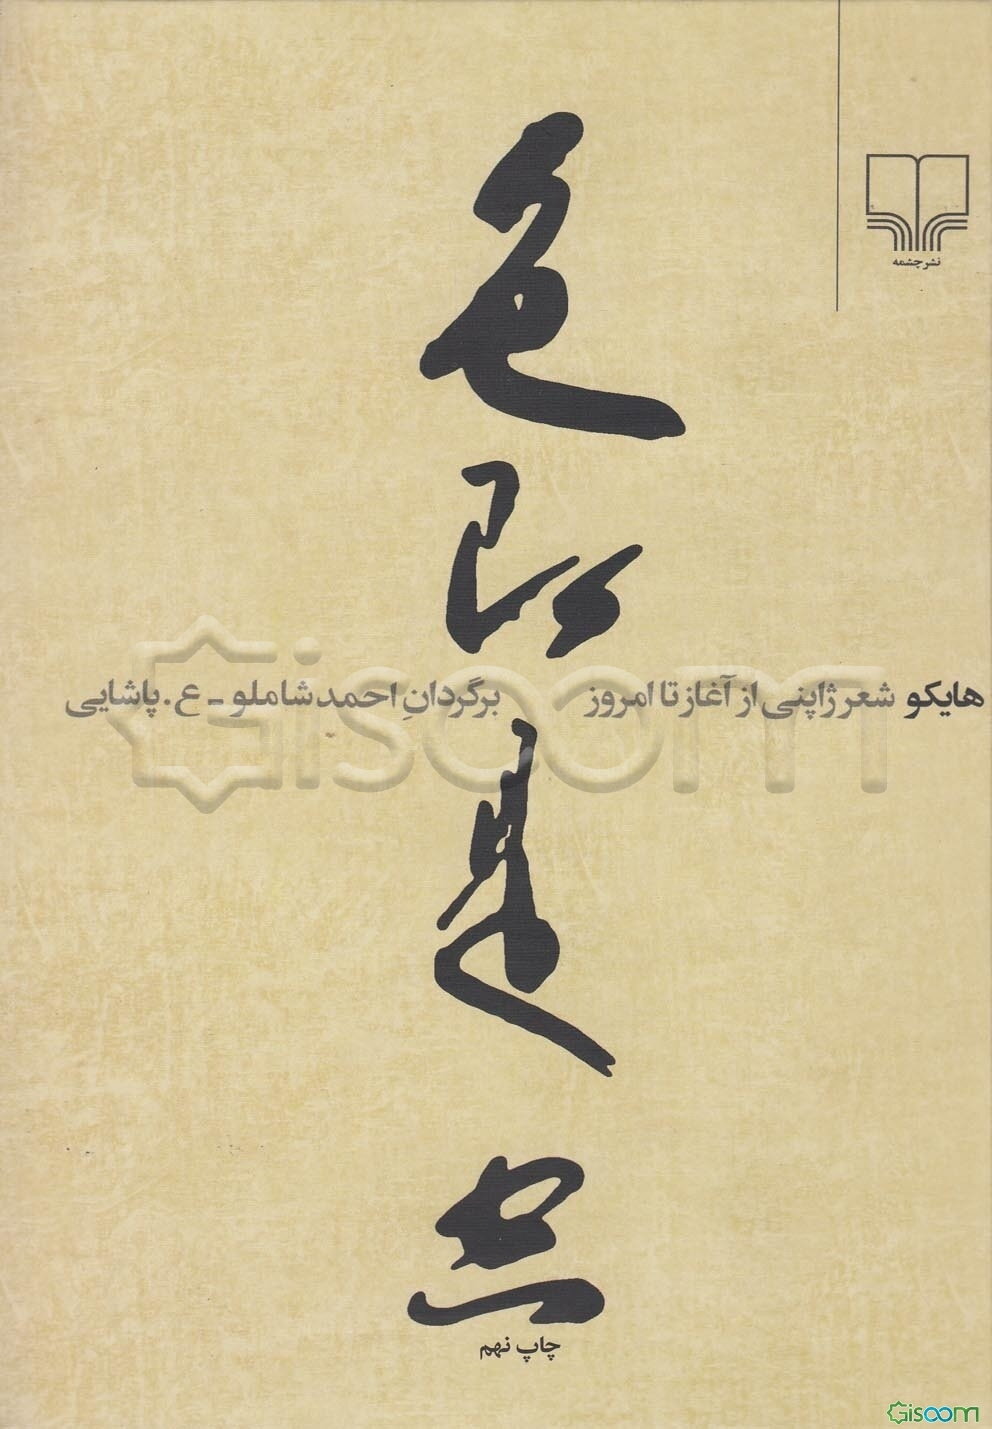 نشر چشمه
色
即
是
空
هایکو شعر ژاپنی از آغاز تا امروز برگردانِ احمد شاملو - ع. پاشایی
Gisoom
چاپ نهم
Gisoom